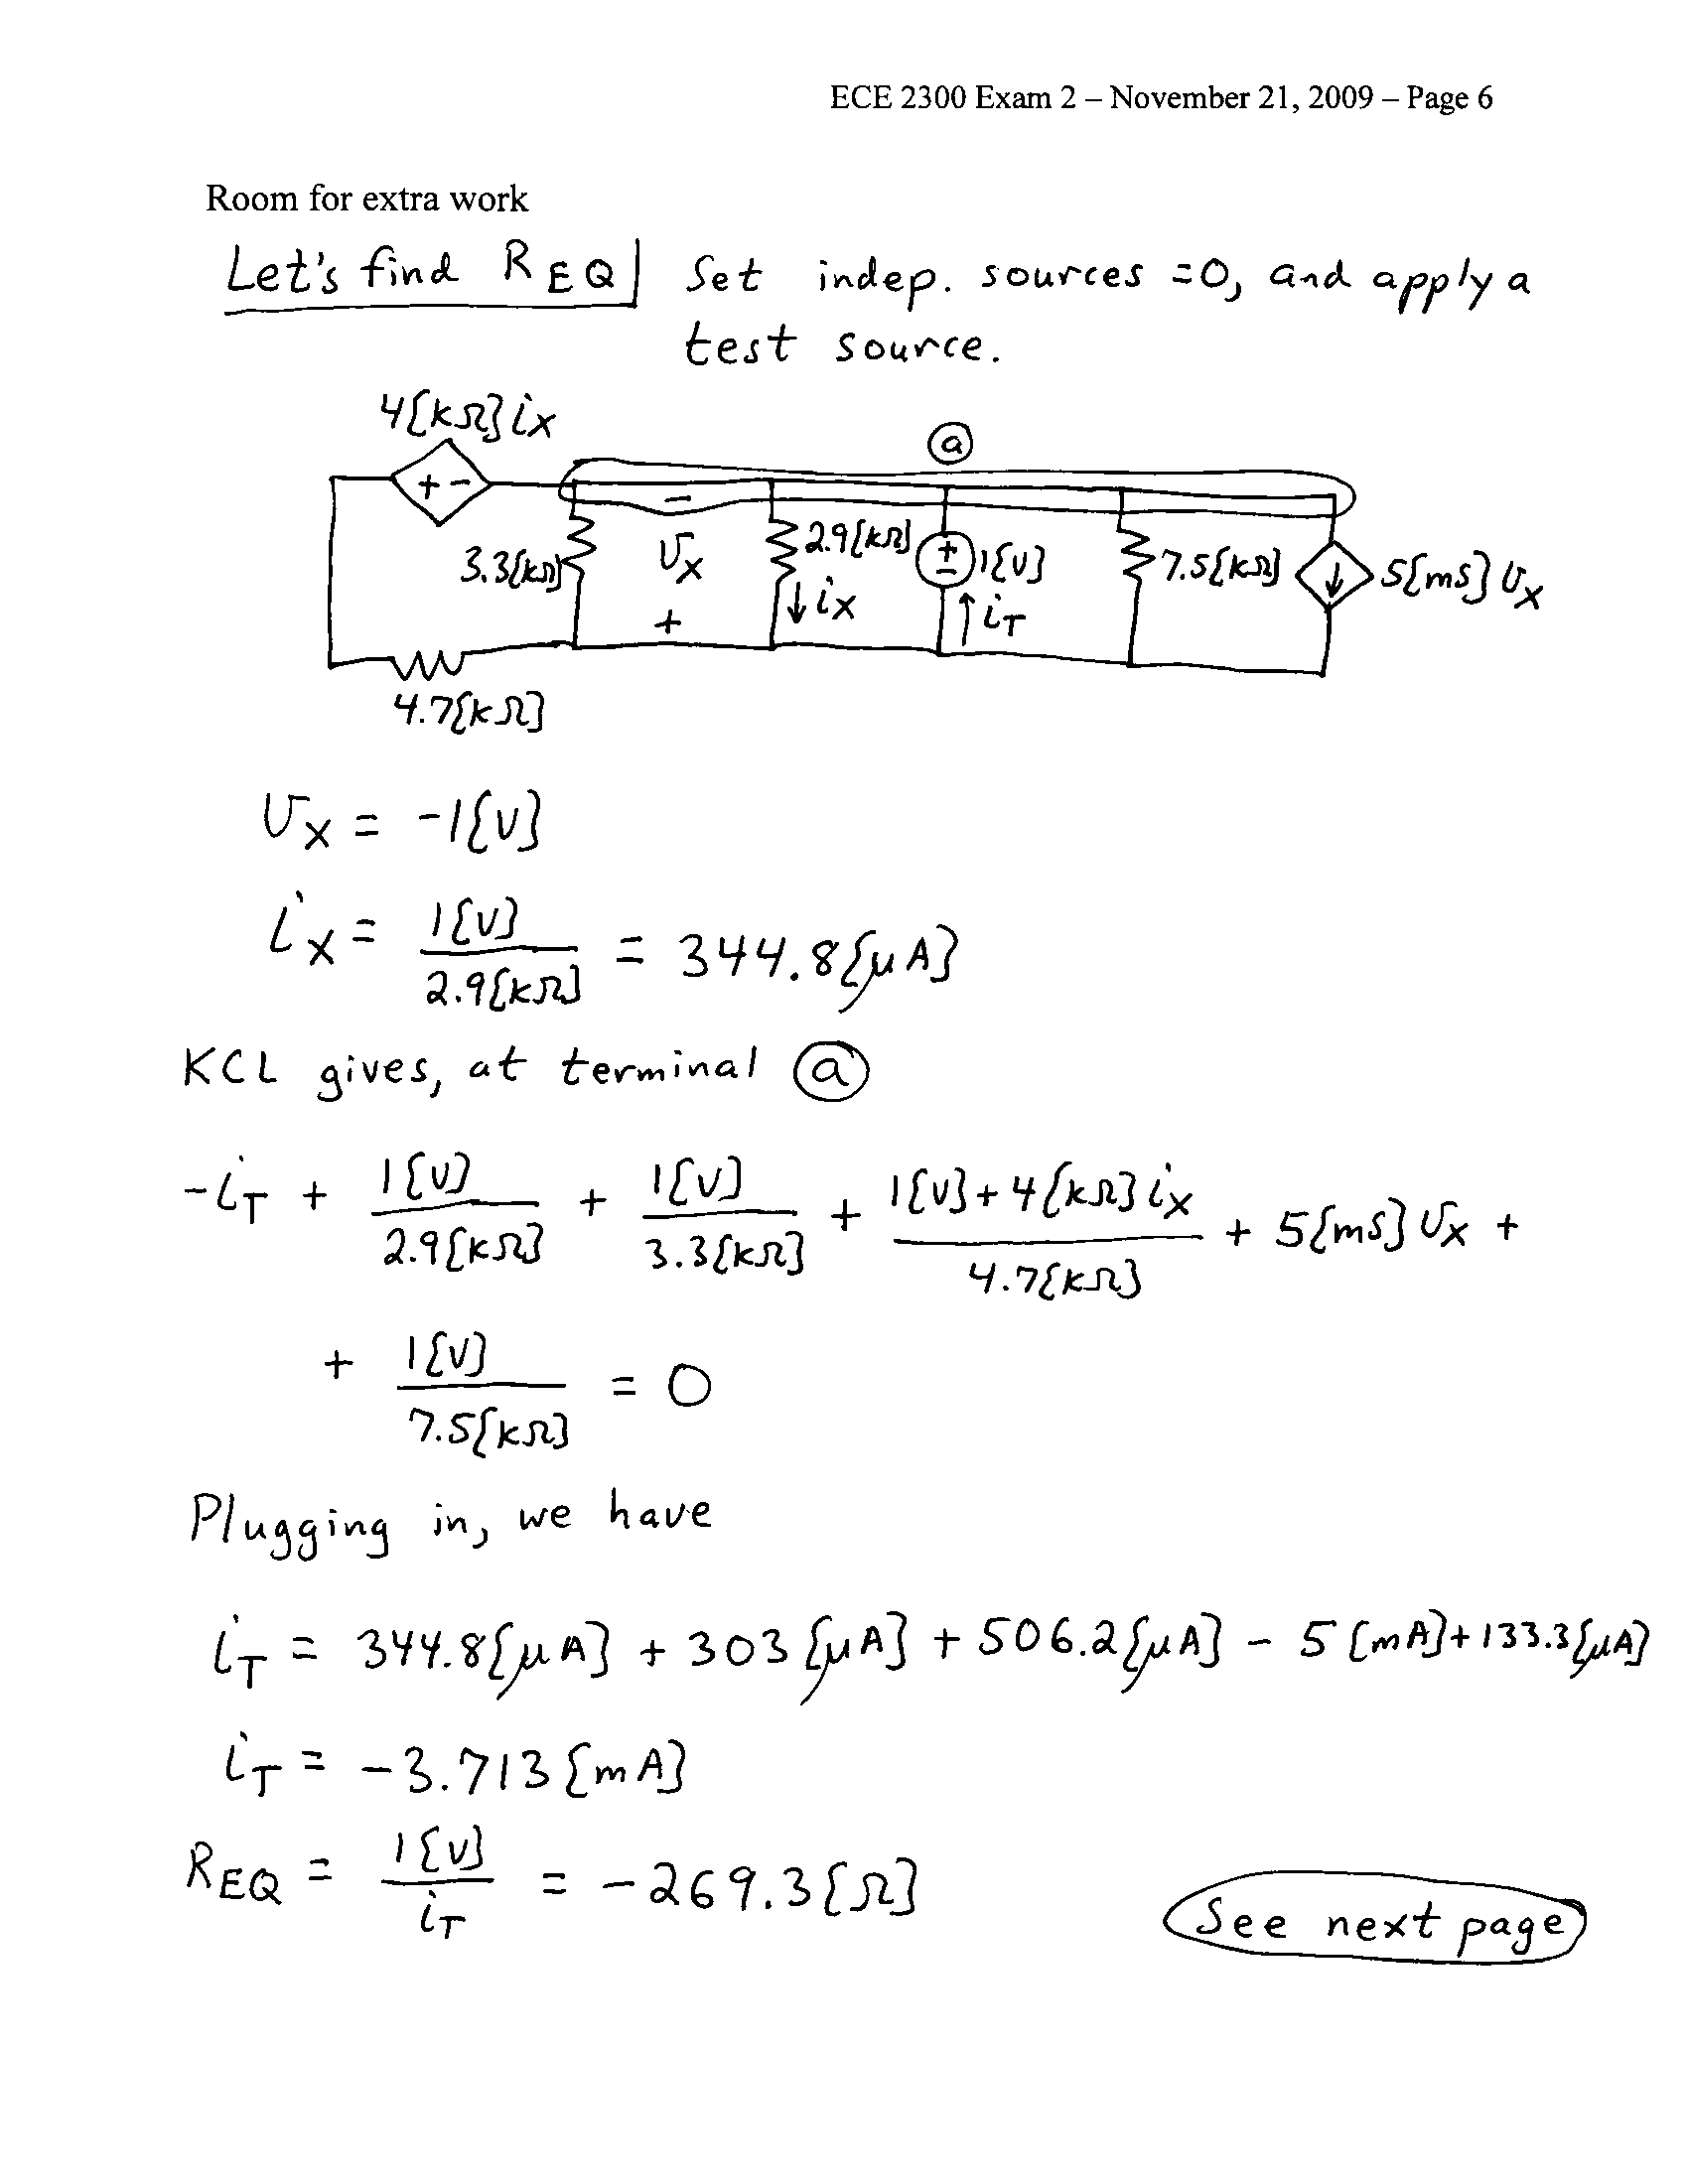 ECE 2300 Exam 2 – November 21, 2009 – Page 6
Room for extra work
Let's find R_EQ | Set indep. sources = 0, and apply a
test source.
4[kΩ] i_X
ⓐ
+ -
-
3.3[kΩ] v_X 2.9[kΩ] + - 1[V] 7.5[kΩ] ↓ 5[mS] v_X
+ ↓ i_X ↑ i_T
4.7[kΩ]
v_X = -1[V]
i_X = 1[V] / 2.9[kΩ] = 344.8[μA]
KCL gives, at terminal ⓐ
-i_T + 1[V] / 2.9[kΩ] + 1[V] / 3.3[kΩ] + (1[V] + 4[kΩ] i_X) / 4.7[kΩ] + 5[mS] v_X +
+ 1[V] / 7.5[kΩ] = 0
Plugging in, we have
i_T = 344.8[μA] + 303[μA] + 506.2[μA] - 5[mA] + 133.3[μA]
i_T = -3.713[mA]
R_EQ = 1[V] / i_T = -269.3[Ω]
See next page